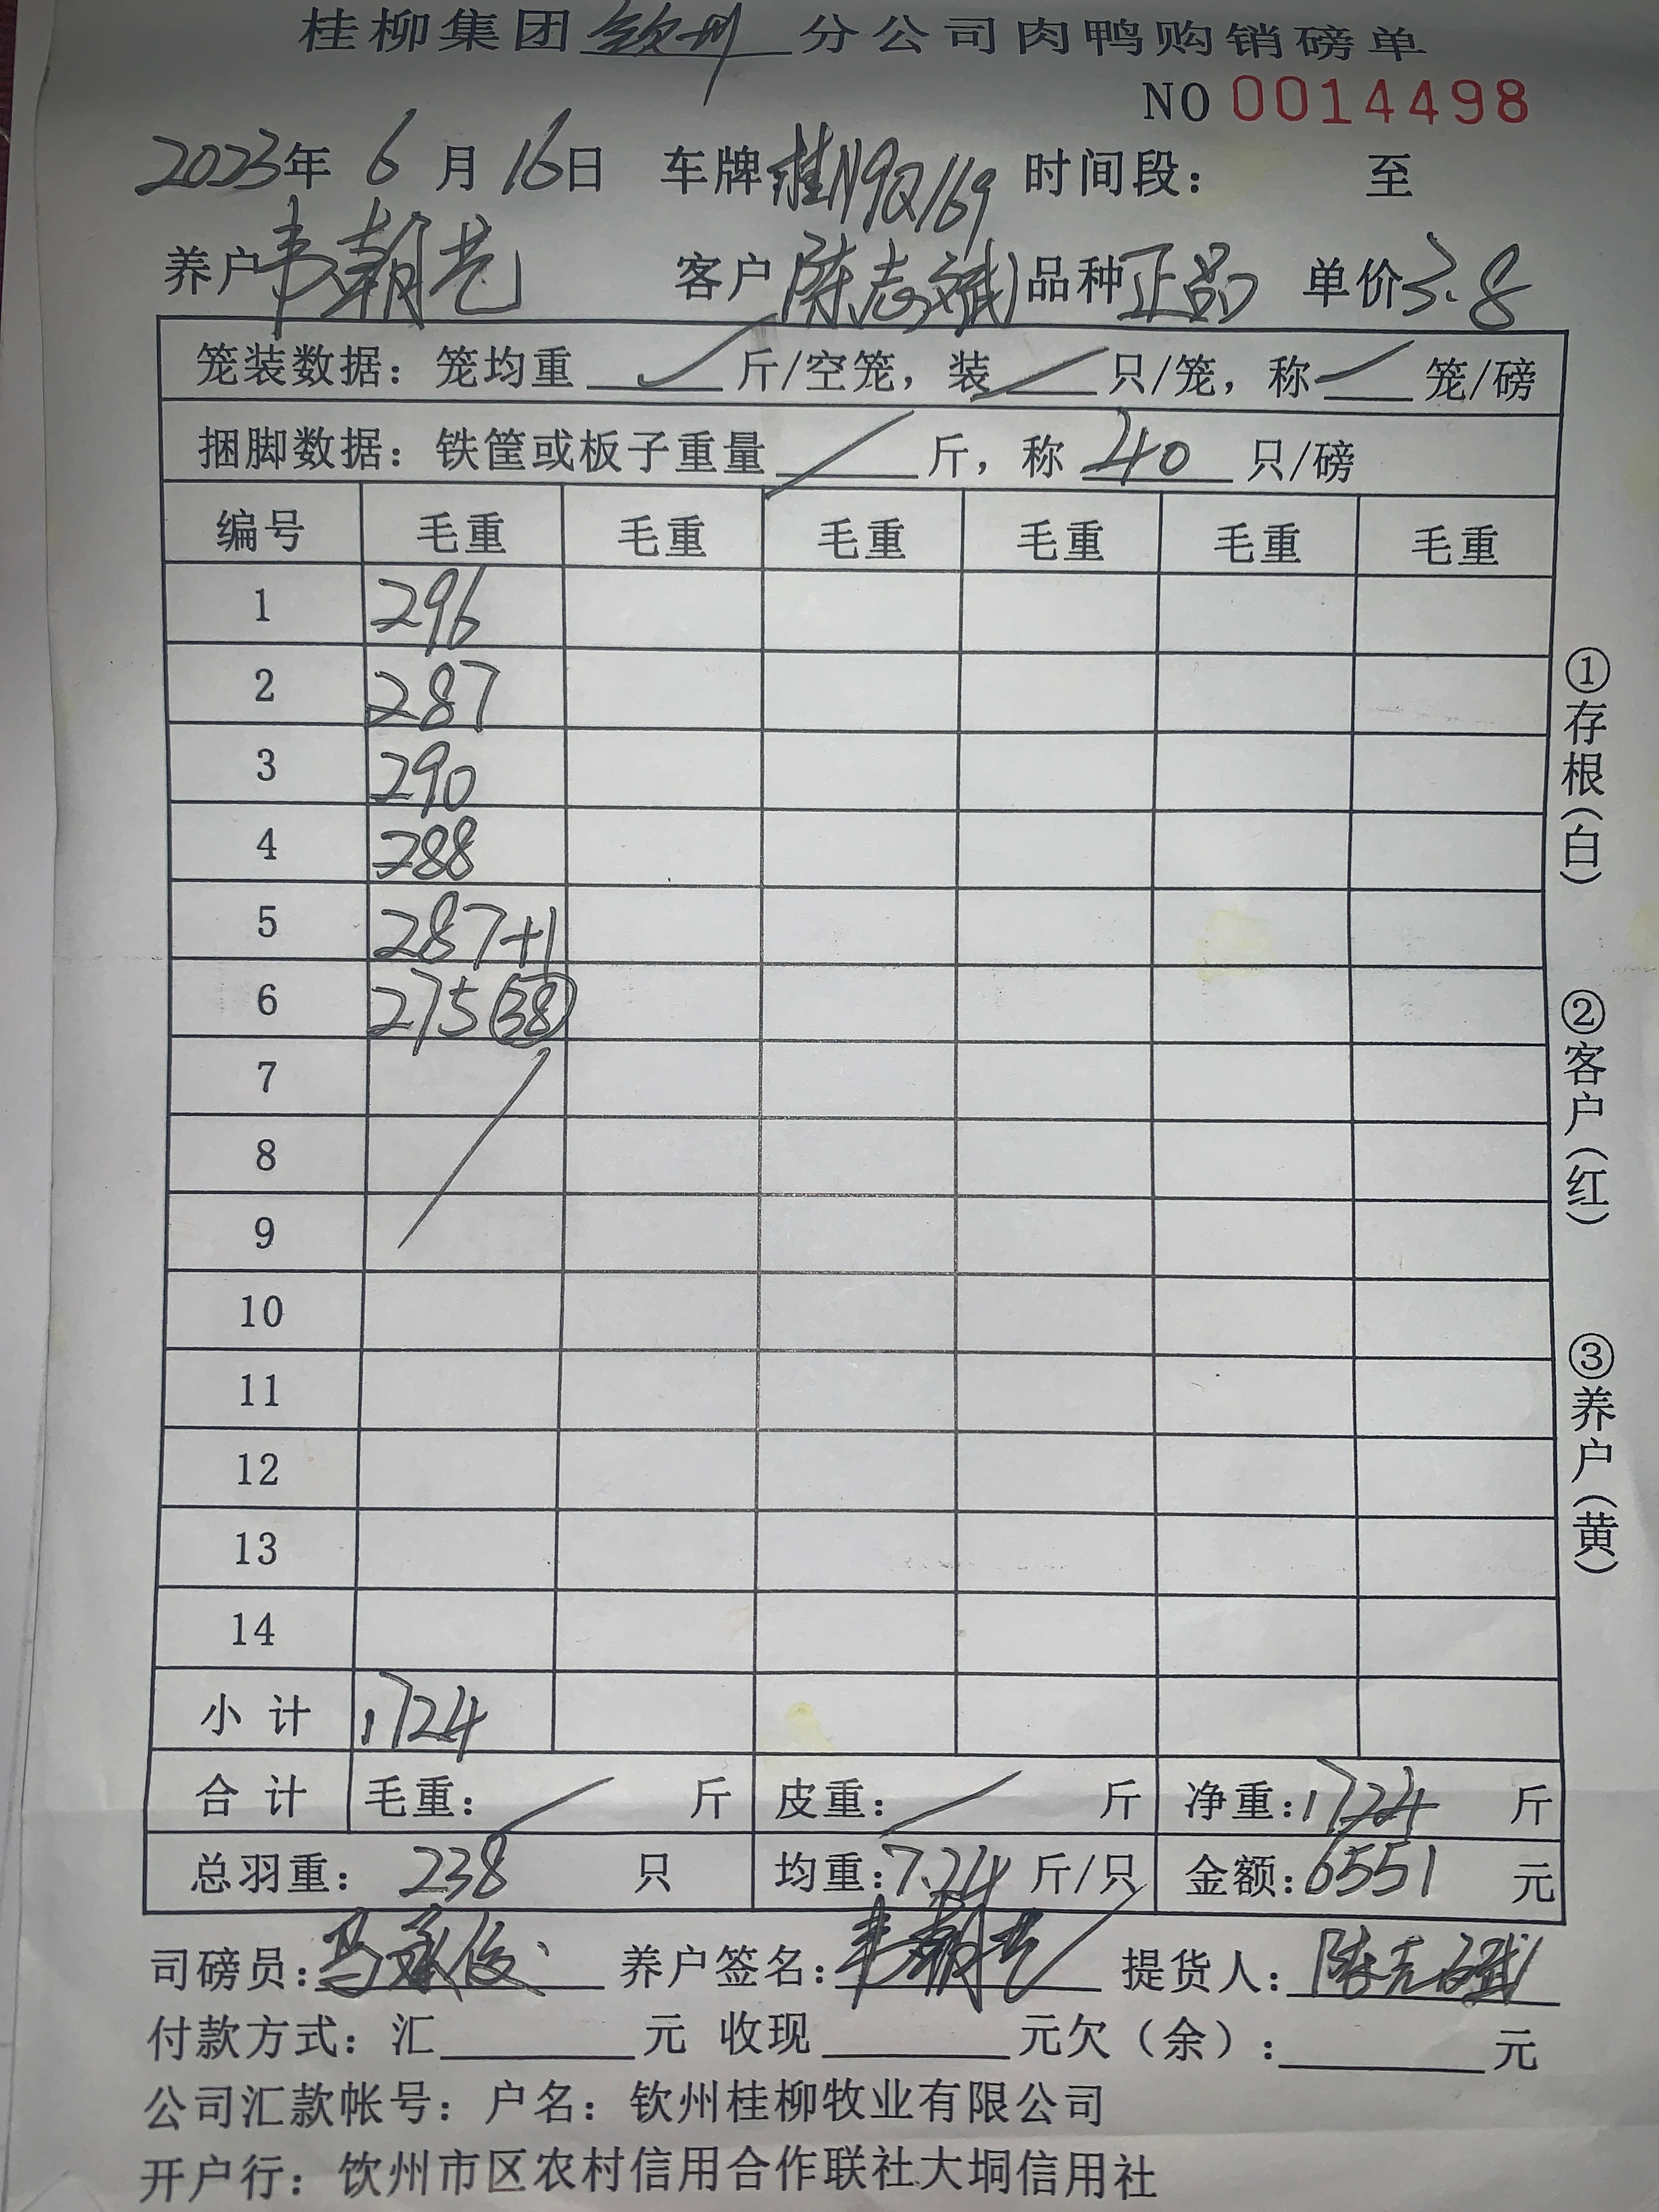 桂柳集团钦州分公司肉鸭购销磅单
NO 0014498
2023年 6 月 16日 车牌桂N9Q169 时间段： 至
养户韦朝艺 客户陈志斌 品种正品 单价3.8
笼装数据：笼均重 斤/空笼，装 只/笼，称 笼/磅
捆脚数据：铁筐或板子重量 斤，称 40 只/磅
编号 毛重 毛重 毛重 毛重 毛重 毛重
1 296
2 287
3 290
4 288
5 287+1
6 275 38
7
8
9
10
11
12
13
14
小计 1724
合计 毛重： 斤 皮重： 斤 净重：1724 斤
总羽重： 238 只 均重：7.24 斤/只 金额：6551 元
司磅员： 养户签名：韦朝艺 提货人：
付款方式：汇 元 收现 元欠（余）： 元
公司汇款帐号：户名：钦州桂柳牧业有限公司
开户行：钦州市区农村信用合作联社大垌信用社
①存根（白）
②客户（红）
③养户（黄）